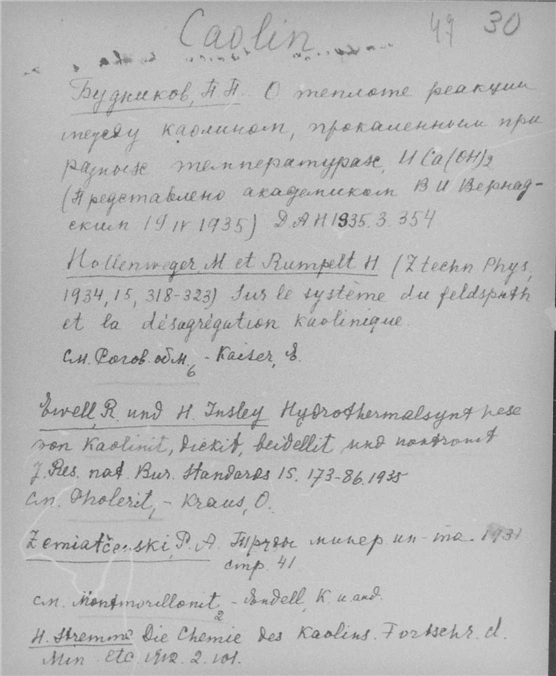 Caolin 49 30
Будников, П П. О теплоте реакции
между каолином, прокаленным при
разных температурах, и Ca(OH)2
(Представлено академиком В И Вернад-
ским 19 IV 1935) ДАН 1935. 3. 354
Hollenweger, M et Rumpelt H (Z techn Phys,
1934, 15, 318-323) Sur le système du feldspath
et la désagrégation kaolinique.
см. Рогов. обм6 - Kaiser, E.
Ewell, R. und H. Insley Hydrothermalsynthese
von Kaolinit, dickit, beidellit und nontronit
J. Res. nat. Bur. Standards 15. 173-86. 1935
см. Pholerit, - Kraus, O.
Zemiatčenski, P. A. Труды минер ин-та. 1931
стр. 41
см. Montmorillonit2 - Endell, K. u and.
H. Stremme Die Chemie des Kaolins. Fortschr. d.
Min etc 1912. 2. 101.